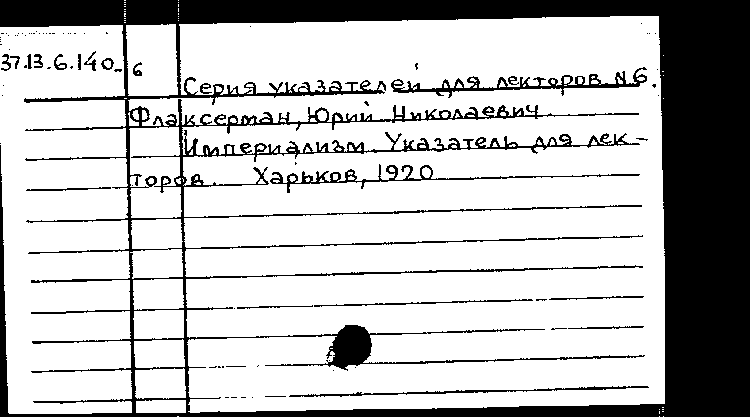 37.13.6.140- 6
Серия указателей для лекторов N6.
Флаксерман, Юрий Николаевич.
Империализм. Указатель для лек-
торов. Харьков, 1920